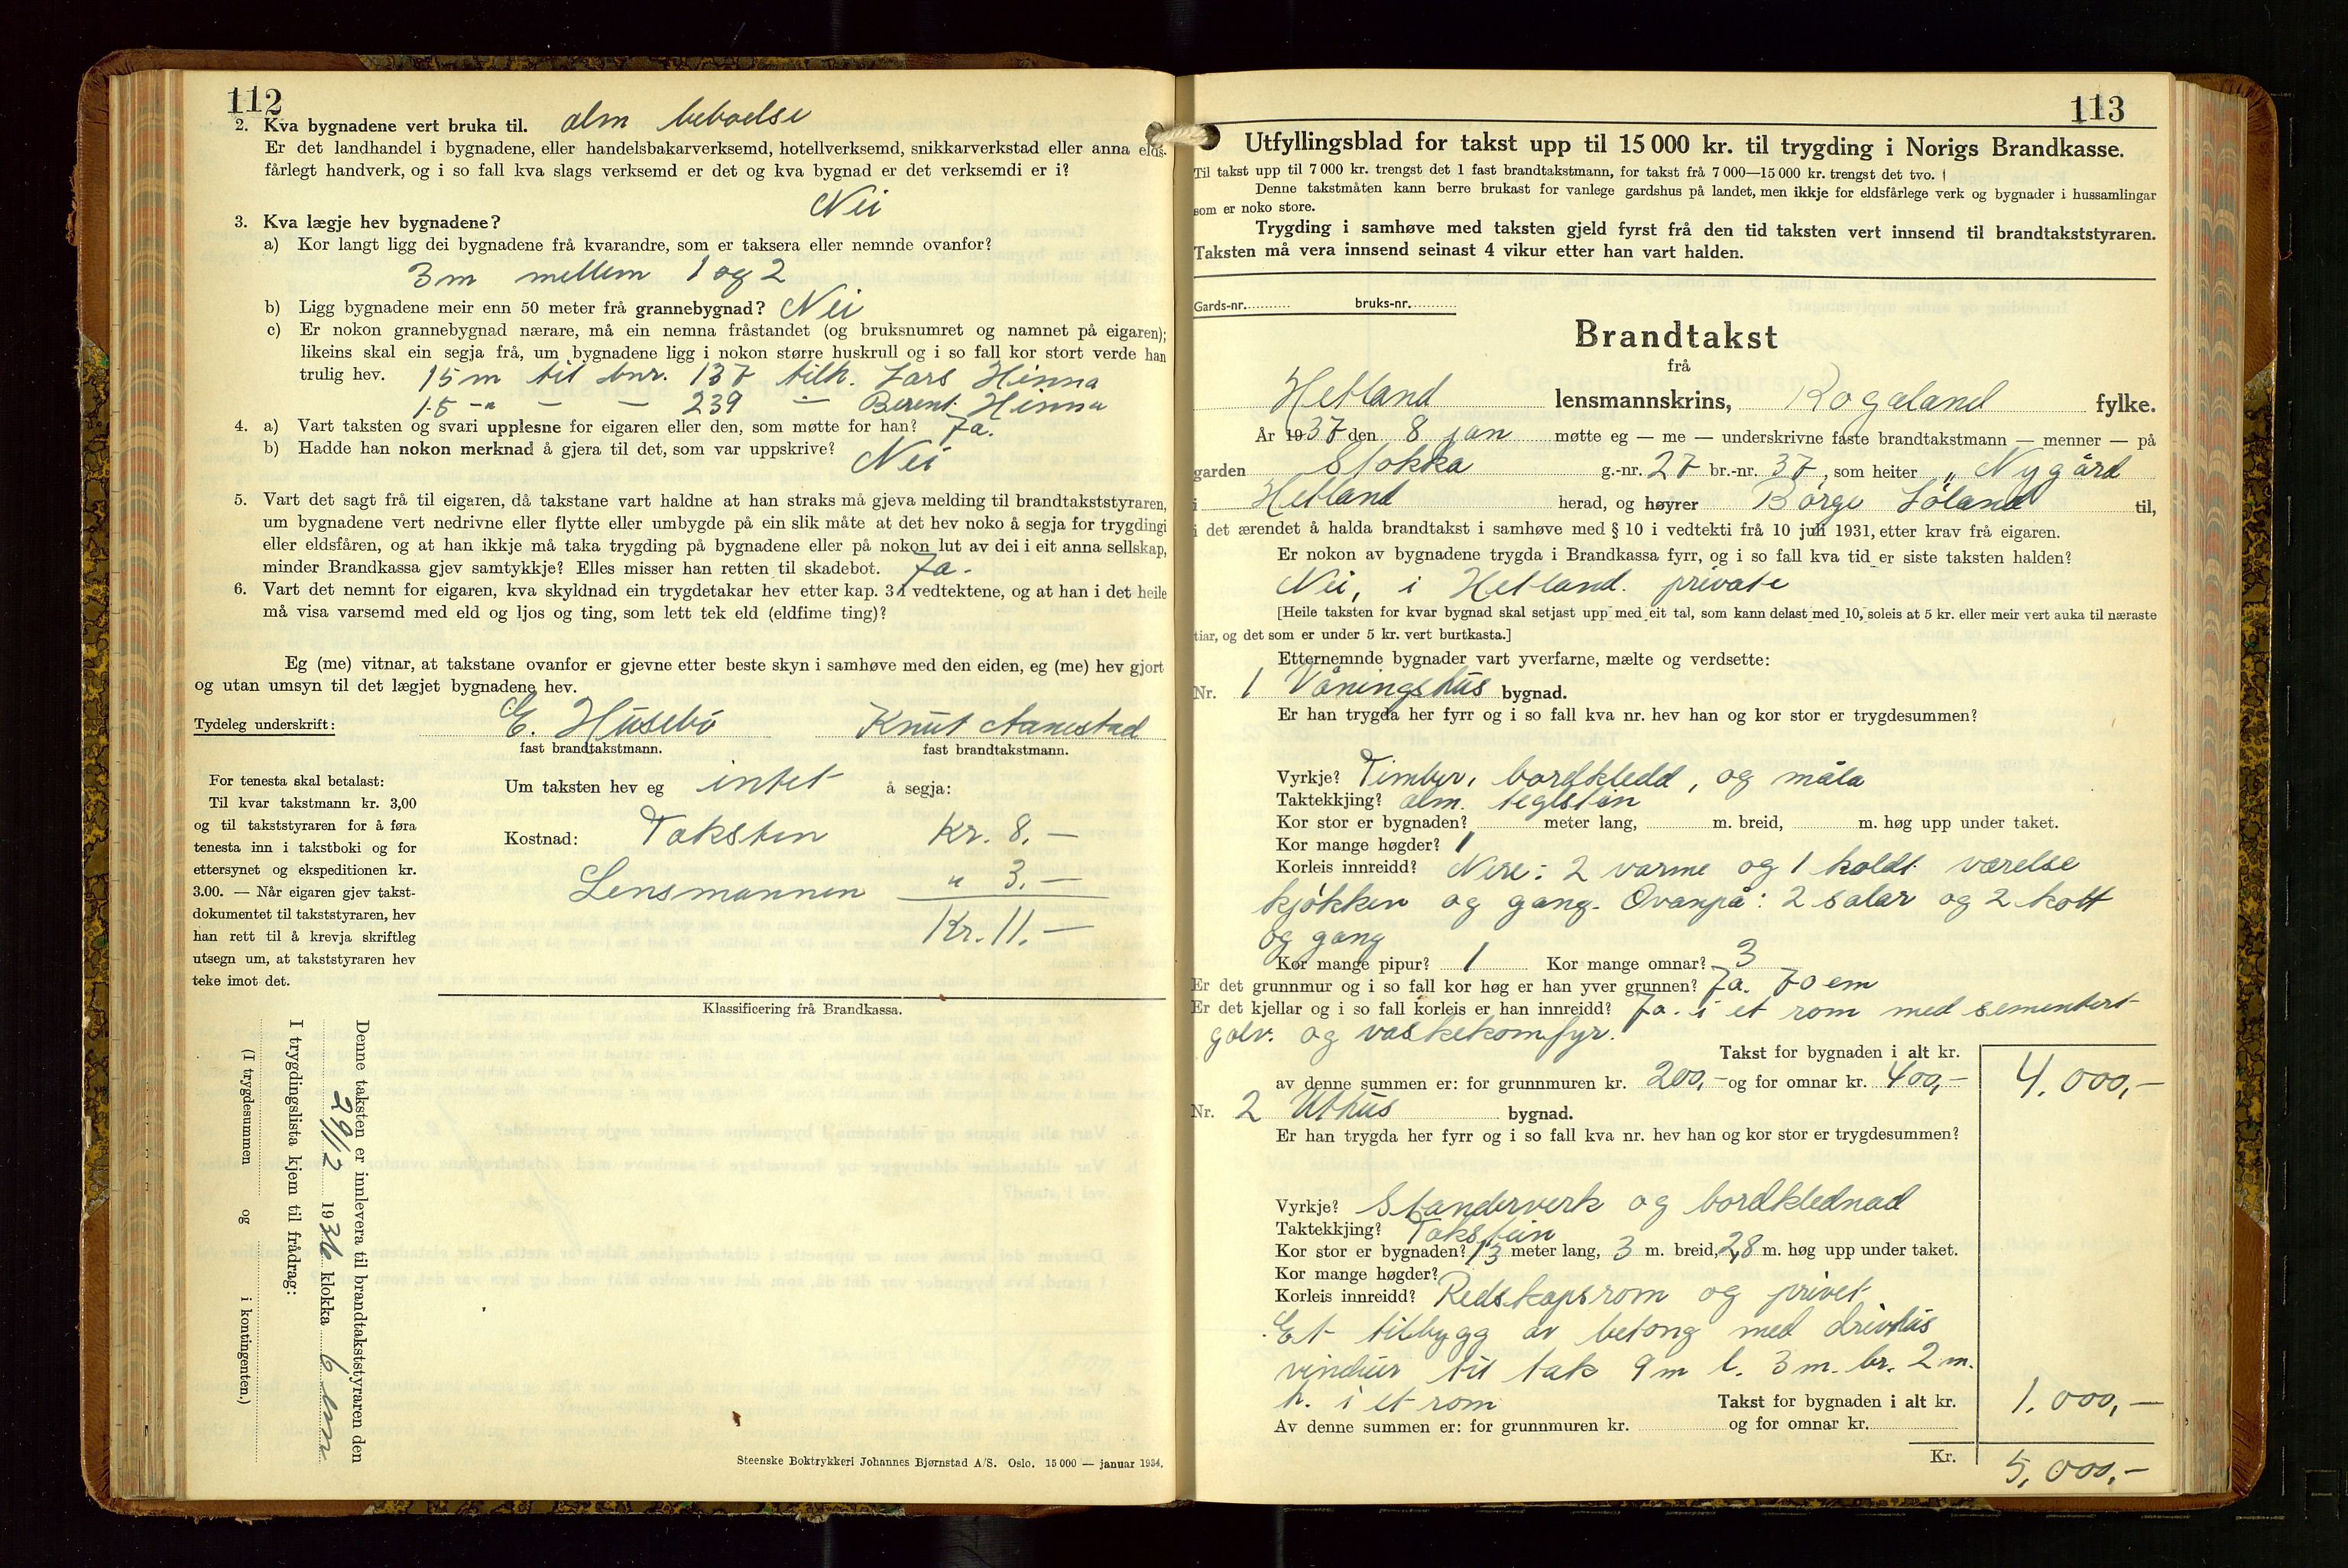 112
2. Kva bygnadene vert bruka til. alm beboelse
Er det landhandel i bygnadene, eller handelsbakarverksemd, hotellverksemd, snikkarverkstad eller anna elds-
fårlegt handverk, og i so fall kva slags verksemd er det og kva bygnad er det verksemdi er i?
Nei
3. Kva lægje hev bygnadene?
a) Kor langt ligg dei bygnadene frå kvarandre, som er taksera eller nemnde ovanfor?
3m mellem 1 og 2
b) Ligg bygnadene meir enn 50 meter frå grannebygnad? Nei
c) Er nokon grannebygnad nærare, må ein nemna fråstandet (og bruksnumret og namnet på eigaren);
likeins skal ein segja frå, um bygnadene ligg i nokon større huskrull og i so fall kor stort verde han
trulig hev. 15m til bnr. 137 tilh. Lars Hinna
15 -"- — — 239 — Berent Hinna
4. a) Vart taksten og svari upplesne for eigaren eller den, som møtte for han? Ja.
b) Hadde han nokon merknad å gjera til det, som var uppskrive? Nei
5. Vart det sagt frå til eigaren, då takstane vart haldne at han straks må gjeva melding til brandtakststyraren,
um bygnadene vert nedrivne eller flytte eller umbygde på ein slik måte at det hev noko å segja for trygdingi
eller eldsfåren, og at han ikkje må taka trygding på bygnadene eller på nokon lut av dei i eit anna sellskap,
minder Brandkassa gjev samtykkje? Elles misser han retten til skadebot. Ja.
6. Vart det nemnt for eigaren, kva skyldnad ein trygdetakar hev etter kap. 3 i vedtektene, og at han i det heile
må visa varsemd med eld og ljos og ting, som lett tek eld (eldfime ting)?
Eg (me) vitnar, at takstane ovanfor er gjevne etter beste skyn i samhøve med den eiden, eg (me) hev gjort
og utan umsyn til det lægjet bygnadene hev.
Tydeleg underskrift: E. Husebö Knut Aanestad
fast brandtakstmann. fast brandtakstmann.
For tenesta skal betalast:
Til kvar takstmann kr. 3,00
og til takststyraren for å føra
tenesta inn i takstboki og for
ettersynet og ekspeditionen kr.
3.00. — Når eigaren gjev takst-
dokumentet til takststyraren, hev
han rett til å krevja skriftleg
utsegn um, at takststyraren hev
teke imot det.
Um taksten hev eg intet å segja:
Kostnad: Taksten Kr. 8.—
Lensmannen " 3.—
Kr. 11.—
Klassificering frå Brandkassa.
Denne taksten er innlevera til brandtakststyraren den
29/12 1936 klokka 6 em
I trygdingslista kjem til frådrag:
(I trygdesummen og i kontingenten.)
Steenske Boktrykkeri Johannes Bjørnstad A/S. Oslo. 15 000 — januar 1934.
113
Utfyllingsblad for takst upp til 15 000 kr. til trygding i Norigs Brandkasse.
Til takst upp til 7 000 kr. trengst det 1 fast brandtakstmann, for takst frå 7 000—15 000 kr. trengst det tvo.
Denne takstmåten kann berre brukast for vanlege gardshus på landet, men ikkje for eldsfårlege verk og bygnader i hussamlingar
som er noko store.
Trygding i samhøve med taksten gjeld fyrst frå den tid taksten vert innsend til brandtakststyraren.
Taksten må vera innsend seinast 4 vikur etter han vart halden.
Gards-nr. bruks-nr.
Brandtakst
frå
Hetland lensmannskrins, Rogaland fylke.
År 1937 den 8 jan møtte eg — me — underskrivne faste brandtakstmann — menner — på
garden Stokka g.-nr. 27 br.-nr. 37, som heiter „ Nygård
i Hetland herad, og høyrer Börge Löland til,
i det ærendet å halda brandtakst i samhøve med § 10 i vedtekti frå 10 juli 1931, etter krav frå eigaren.
Er nokon av bygnadene trygda i Brandkassa fyrr, og i so fall kva tid er siste taksten halden?
Nei, i Hetland. private
[Heile taksten for kvar bygnad skal setjast upp med eit tal, som kann delast med 10, soleis at 5 kr. eller meir vert auka til næraste
tiar, og det som er under 5 kr. vert burtkasta.]
Etternemnde bygnader vart yverfarne, mælte og verdsette:
Nr. 1 Våningshus bygnad.
Er han trygda her fyrr og i so fall kva nr. hev han og kor stor er trygdesummen?
Vyrkje? Timber, bordkledd, og måla
Taktekkjing? alm. teglstein
Kor stor er bygnaden? meter lang, m. breid, m. høg upp under taket.
Kor mange høgder? 1
Korleis innreidd? Nere: 2 varme og 1 koldt værelse
kjökken og gang. Ovanpå: 2 salar og 2 kott
og gang
Kor mange pipur? 1 Kor mange omnar? 3
Er det grunnmur og i so fall kor høg er han yver grunnen? Ja. 70 cm
Er det kjellar og i so fall korleis er han innreidd? Ja. i et rom med sementert
golv. og vaskekomfyr.
Takst for bygnaden i alt kr. 4.000,—
av denne summen er: for grunnmuren kr. 200,— og for omnar kr. 400,—
Nr. 2 Uthus bygnad.
Er han trygda her fyrr og i so fall kva nr. hev han og kor stor er trygdesummen?
Vyrkje? Standerverk og bordklednad
Taktekkjing? Takstein
Kor stor er bygnaden? 13 meter lang, 3 m. breid, 2,8 m. høg upp under taket.
Kor mange høgder?
Korleis innreidd? Redskapsrom og privet
Et tilbygg av betong med drivhus
vindur til tak 9m l. 3m. br. 2m.
h. i et rom Takst for bygnaden i alt kr. 1.000,—
Av denne summen er: for grunnmuren kr. og for omnar kr.
Kr. 5.000,—